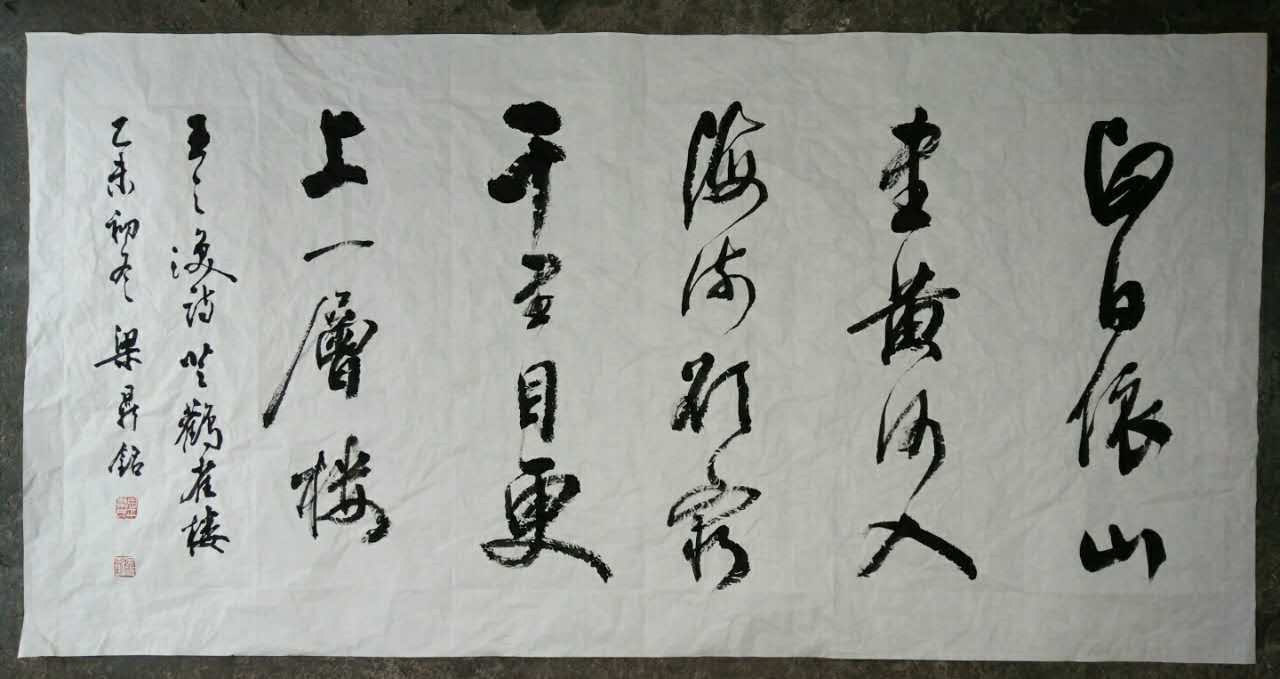 白日依山
盡黄河入
海流欲穷
千里目更
上一層楼
王之渙诗登鸛雀楼
乙未初冬 梁鼎銘